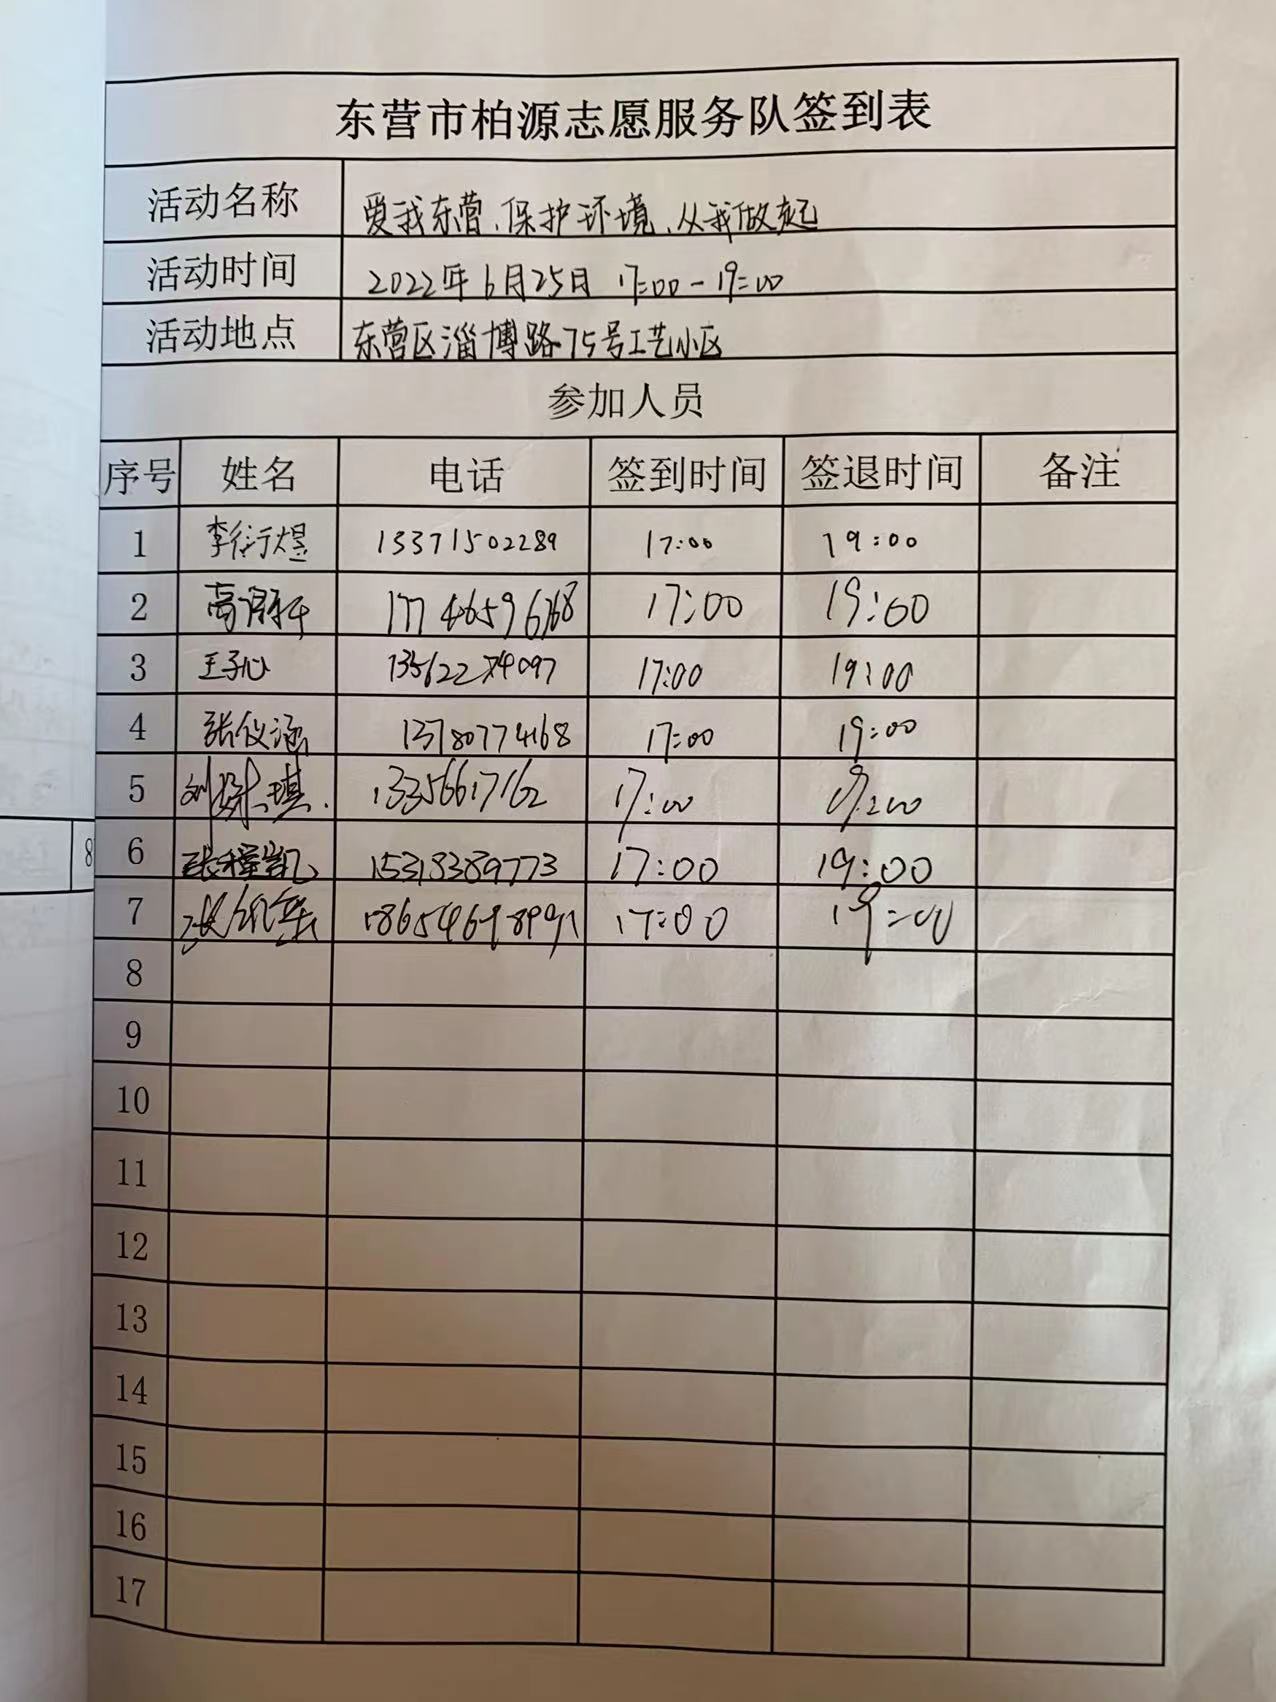 东营市柏源志愿服务队签到表
活动名称 爱我东营、保护环境、从我做起
活动时间 2022年6月25日 17:00-19:00
活动地点 东营区淄博路75号工艺小区
参加人员
序号 姓名 电话 签到时间 签退时间 备注
1 李衍煜 13371502289 17:00 19:00
2 17:00 19:00
3 王子心 17:00 19:00
4 张仪涵 13780774168 17:00 19:00
5 13356617162 17:00 19:00
6 15318389773 17:00 19:00
7 17:00 19:00
8
9
10
11
12
13
14
15
16
17
8